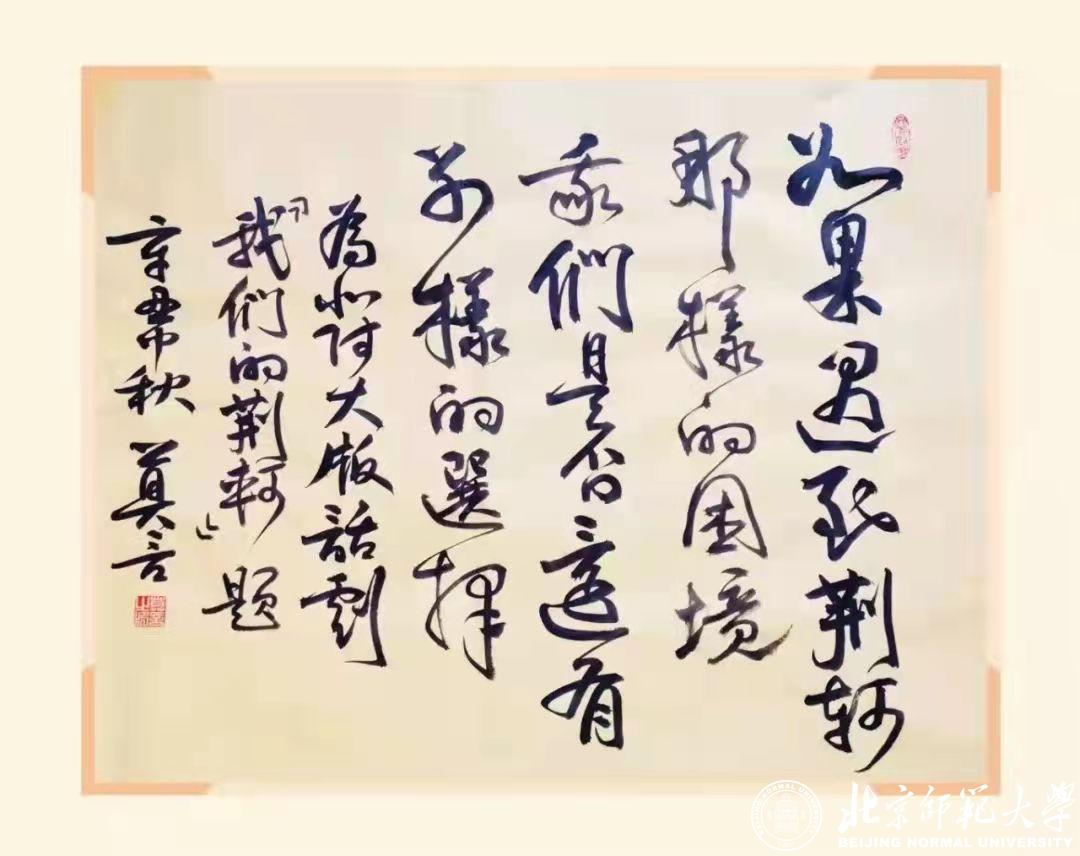 如果遇到荆軻
那樣的困境
我們是否還有
别樣的選择
為北师大版話劇
「我们的荆軻」题
辛丑中秋 莫言
北京師範大學
BEIJING NORMAL UNIVERSITY